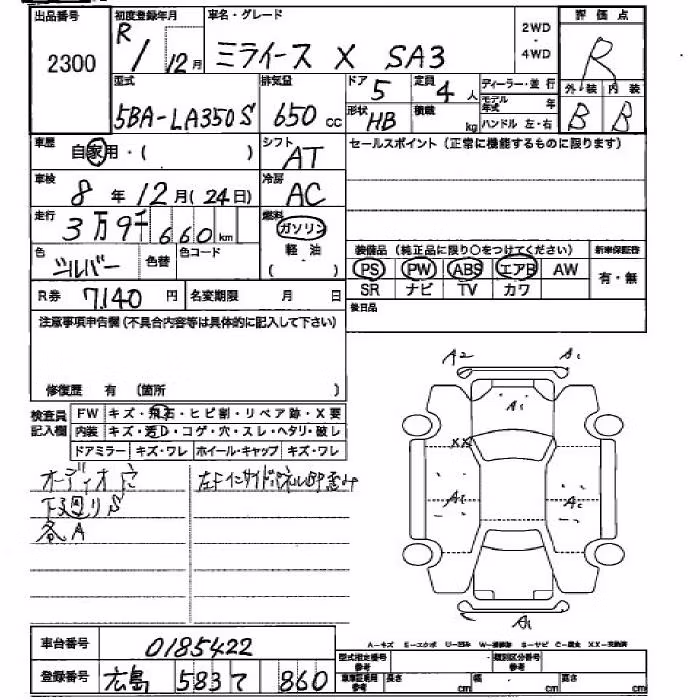 出品番号
2300
初度登録年月
R 1 / 12月
車名・グレード
ミライース X SA3
2WD
・
4WD
評価点
R
型式
5BA-LA350S
排気量
650 cc
ドア
5
定員
4人
形状
HB
積載
kg
ディーラー・並行
モデル年式 年
ハンドル 左・右
外装 内装
B B
車歴
自家用・( )
シフト
AT
セールスポイント(正常に機能するものに限ります)
車検
8年12月(24日)
冷房
AC
走行
3万9千660km
燃料
ガソリン
軽油
( )
色
シルバー
色替
色コード
装備品(純正品に限り○をつけてください)
新車保証書
PS PW ABS エアB AW
SR ナビ TV カワ
有・無
R券
7140円
名変期限 月 日
後日品
注意事項申告欄(不具合内容等は具体的に記入して下さい)
修復歴 有 (箇所 )
検査員記入欄
FW キズ・飛石・ヒビ割・リペア跡・X要
内装 キズ・汚れ・コゲ・穴・スレ・ヘタリ・破レ
ドアミラー キズ・ワレ ホイール・キャップ キズ・ワレ
オーディオ穴
下廻りS
各A
A2 A1
A1
XX
A1
車台番号
0185422
登録番号
広島 583 て 860
A-キズ E-エクボ U-凹み W-補修跡 S-サビ C-腐食 XX-交換済
型式指定番号 参考
類別区分番号 参考
車庫証明用 参考
長さ cm
幅 cm
高さ cm